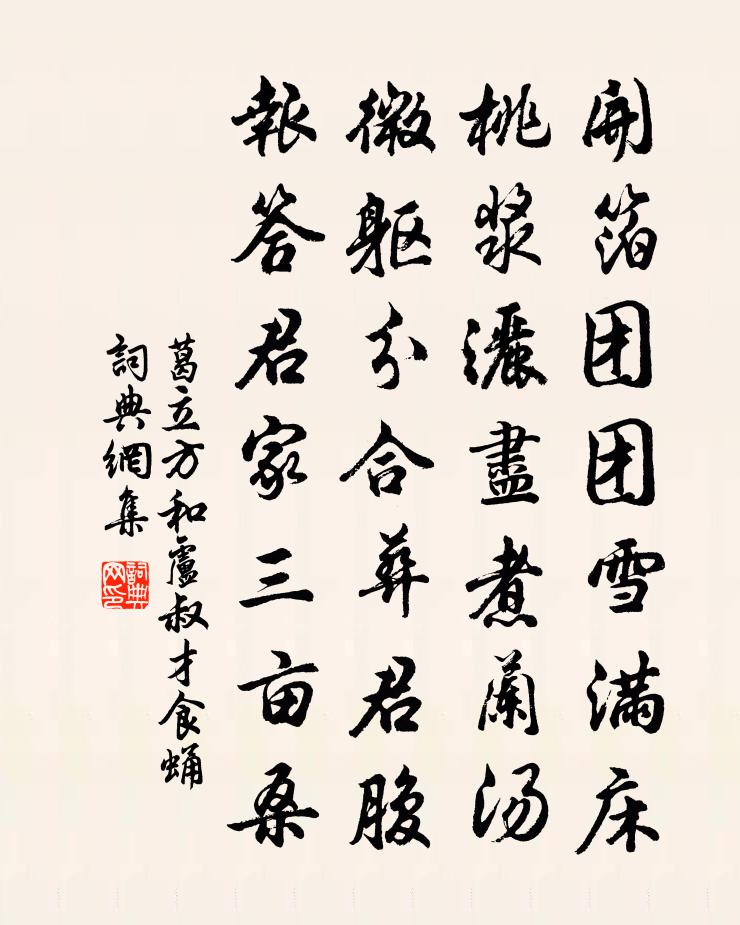 開箔团团雪满床
桃漿灑盡煮蘭汤
微躯分合葬君腹
報答君家三亩桑
葛立方和盧叔才食蛹
詞典網集
詞典网印